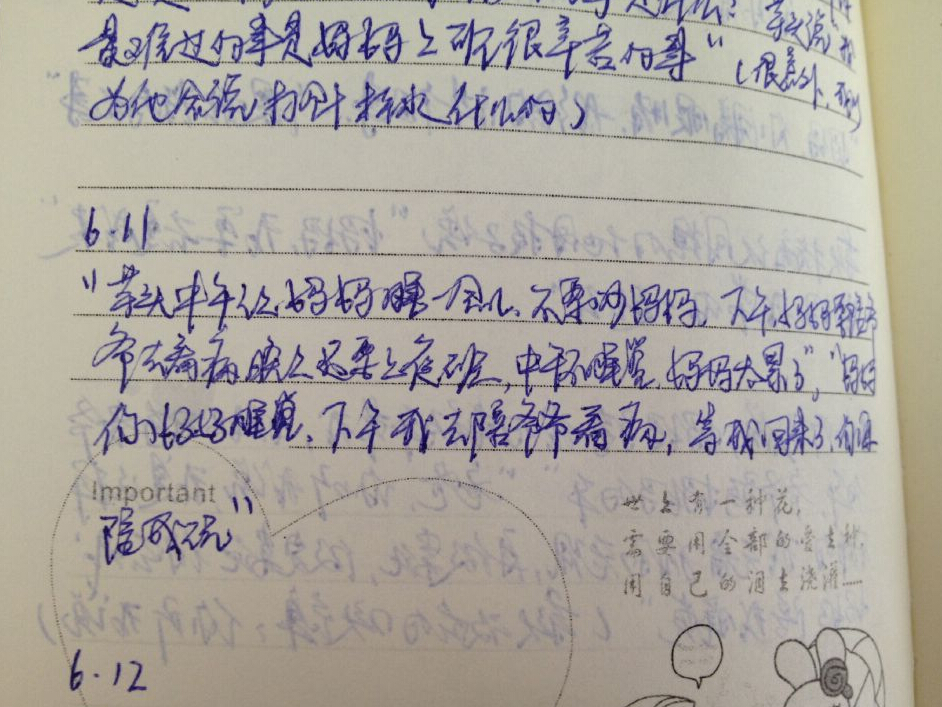 是难过的事是妈妈上班很辛苦的事"
(很意外,
为他会说打针抽血什么的)
6.11
"芊头中午让妈妈睡一会儿,不要吵妈妈,下午妈妈要陪爷
爷去看病晚上还要上夜班,中午不睡觉妈妈太累了","妈妈
你好好睡觉,下午我去陪爷爷看病,等我回来了,你再
Important
陪我玩"
世上有一种花,
需要用全部的爱去种,
用自己的泪去浇灌......
6.12